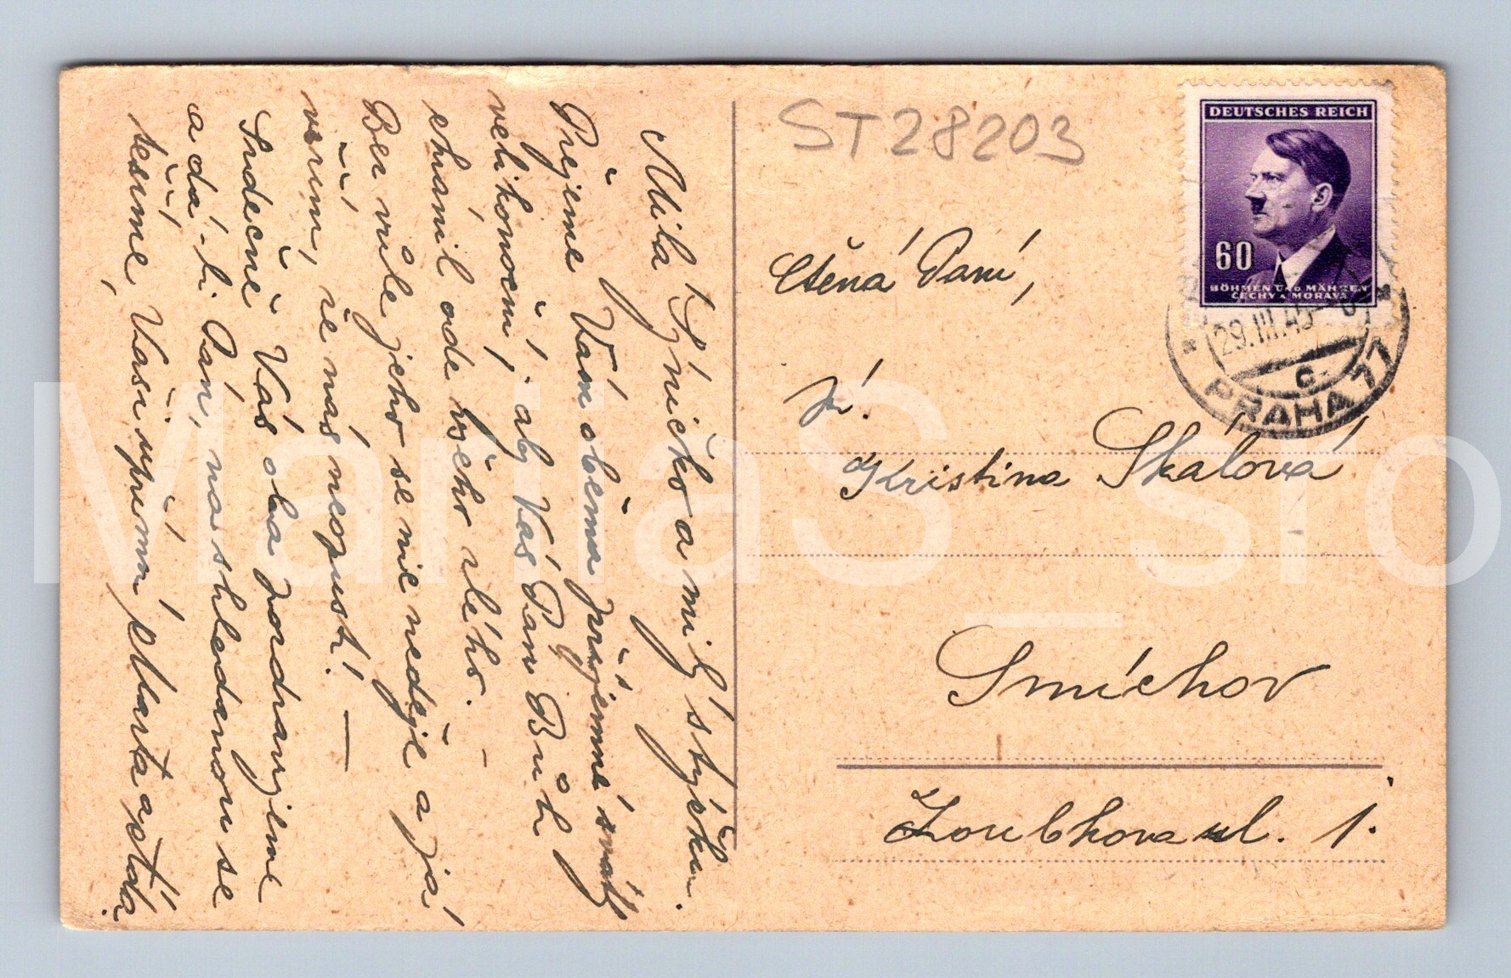 Milá Týničko a milý strýčku.
Přejeme Vám oběma příjemné svátky
velikonoční, aby Vás Pán Bůh
chránil ode všeho zlého. –
Bez vůle jeho se nic neděje a já
věřím, že nás neopustí! —
Srdečně Vás oba pozdravujeme
a dá-li Pán, na shledanou se
těšíme, Vaši upřímní Marta a
ST28203
Ctěná Paní,
Kristina Skálová
Smíchov
Zoubkova ul. 1.
DEUTSCHES REICH
60
BÖHMEN UND MÄHREN
ČECHY A MORAVA
29.III.45
c
PRAHA 77
MartaS_sro